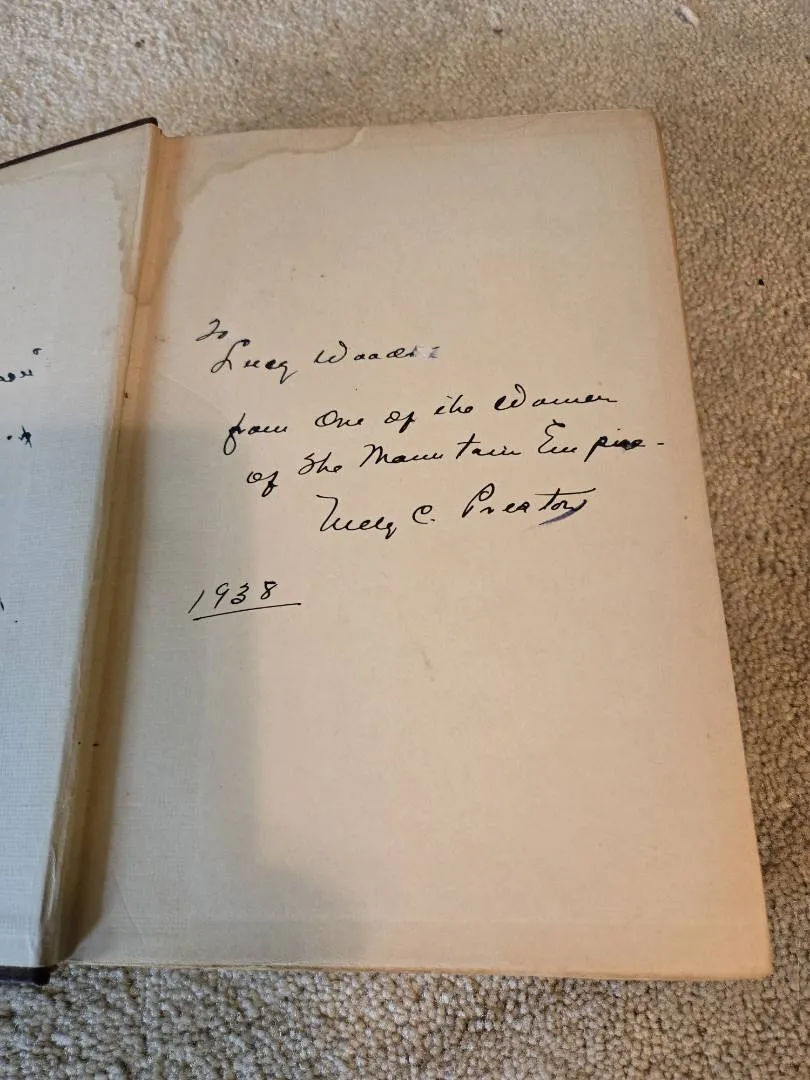 To
Lucy Woods
from One of the Women
of the Mountain Empire -
Nelly C. Preston
1938